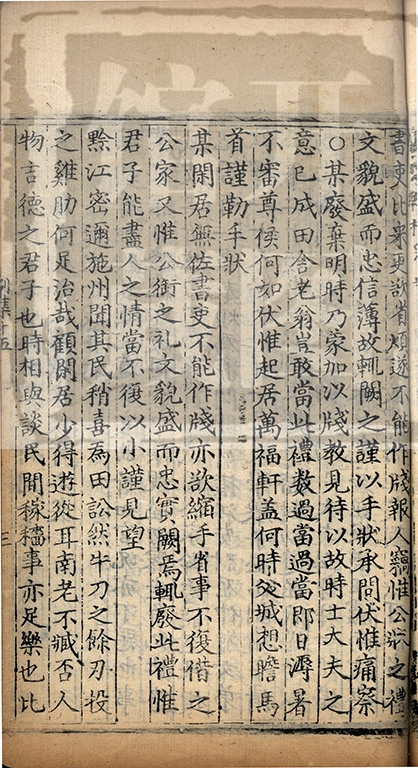 書吏比來更欲省煩遂不能作牋報人竊惟公狀之禮
文貌盛而忠信薄故輒闕之謹以手狀承問伏惟痛察
○某廢棄明時乃蒙加以牋教見待以故時士大夫之
意已成田舍老翁豈敢當此禮數過當過當即日溽暑
不審尊候何如伏惟起居萬福軒蓋何時父城想瞻馬
首謹勒手狀
某閑居無佐書吏不能作牋亦欲縮手省事不復借之
公家又惟公銜之礼文貌盛而忠實闕焉輒廢此禮惟
君子能盡人之情當不復以小謹見望
黔江密邇施州聞其民稍喜爲田訟然牛刀之餘刃投
之雞肋何足治哉顧閑居少得遊從耳南老不臧否人
物言德之君子也時相與談民間稼穡事亦足樂也比
別集十五
三